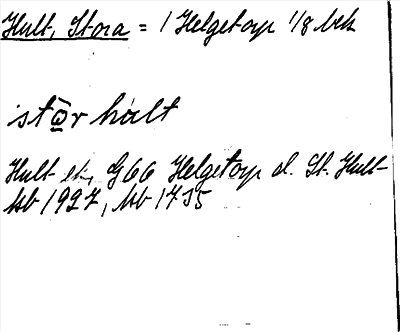 Hult, Stora = 1 Helgetorp 1/8 mtl
stōr hult
Hult et, G66 Helgetorp el. St. Hult-
kb 1927, kb 1735